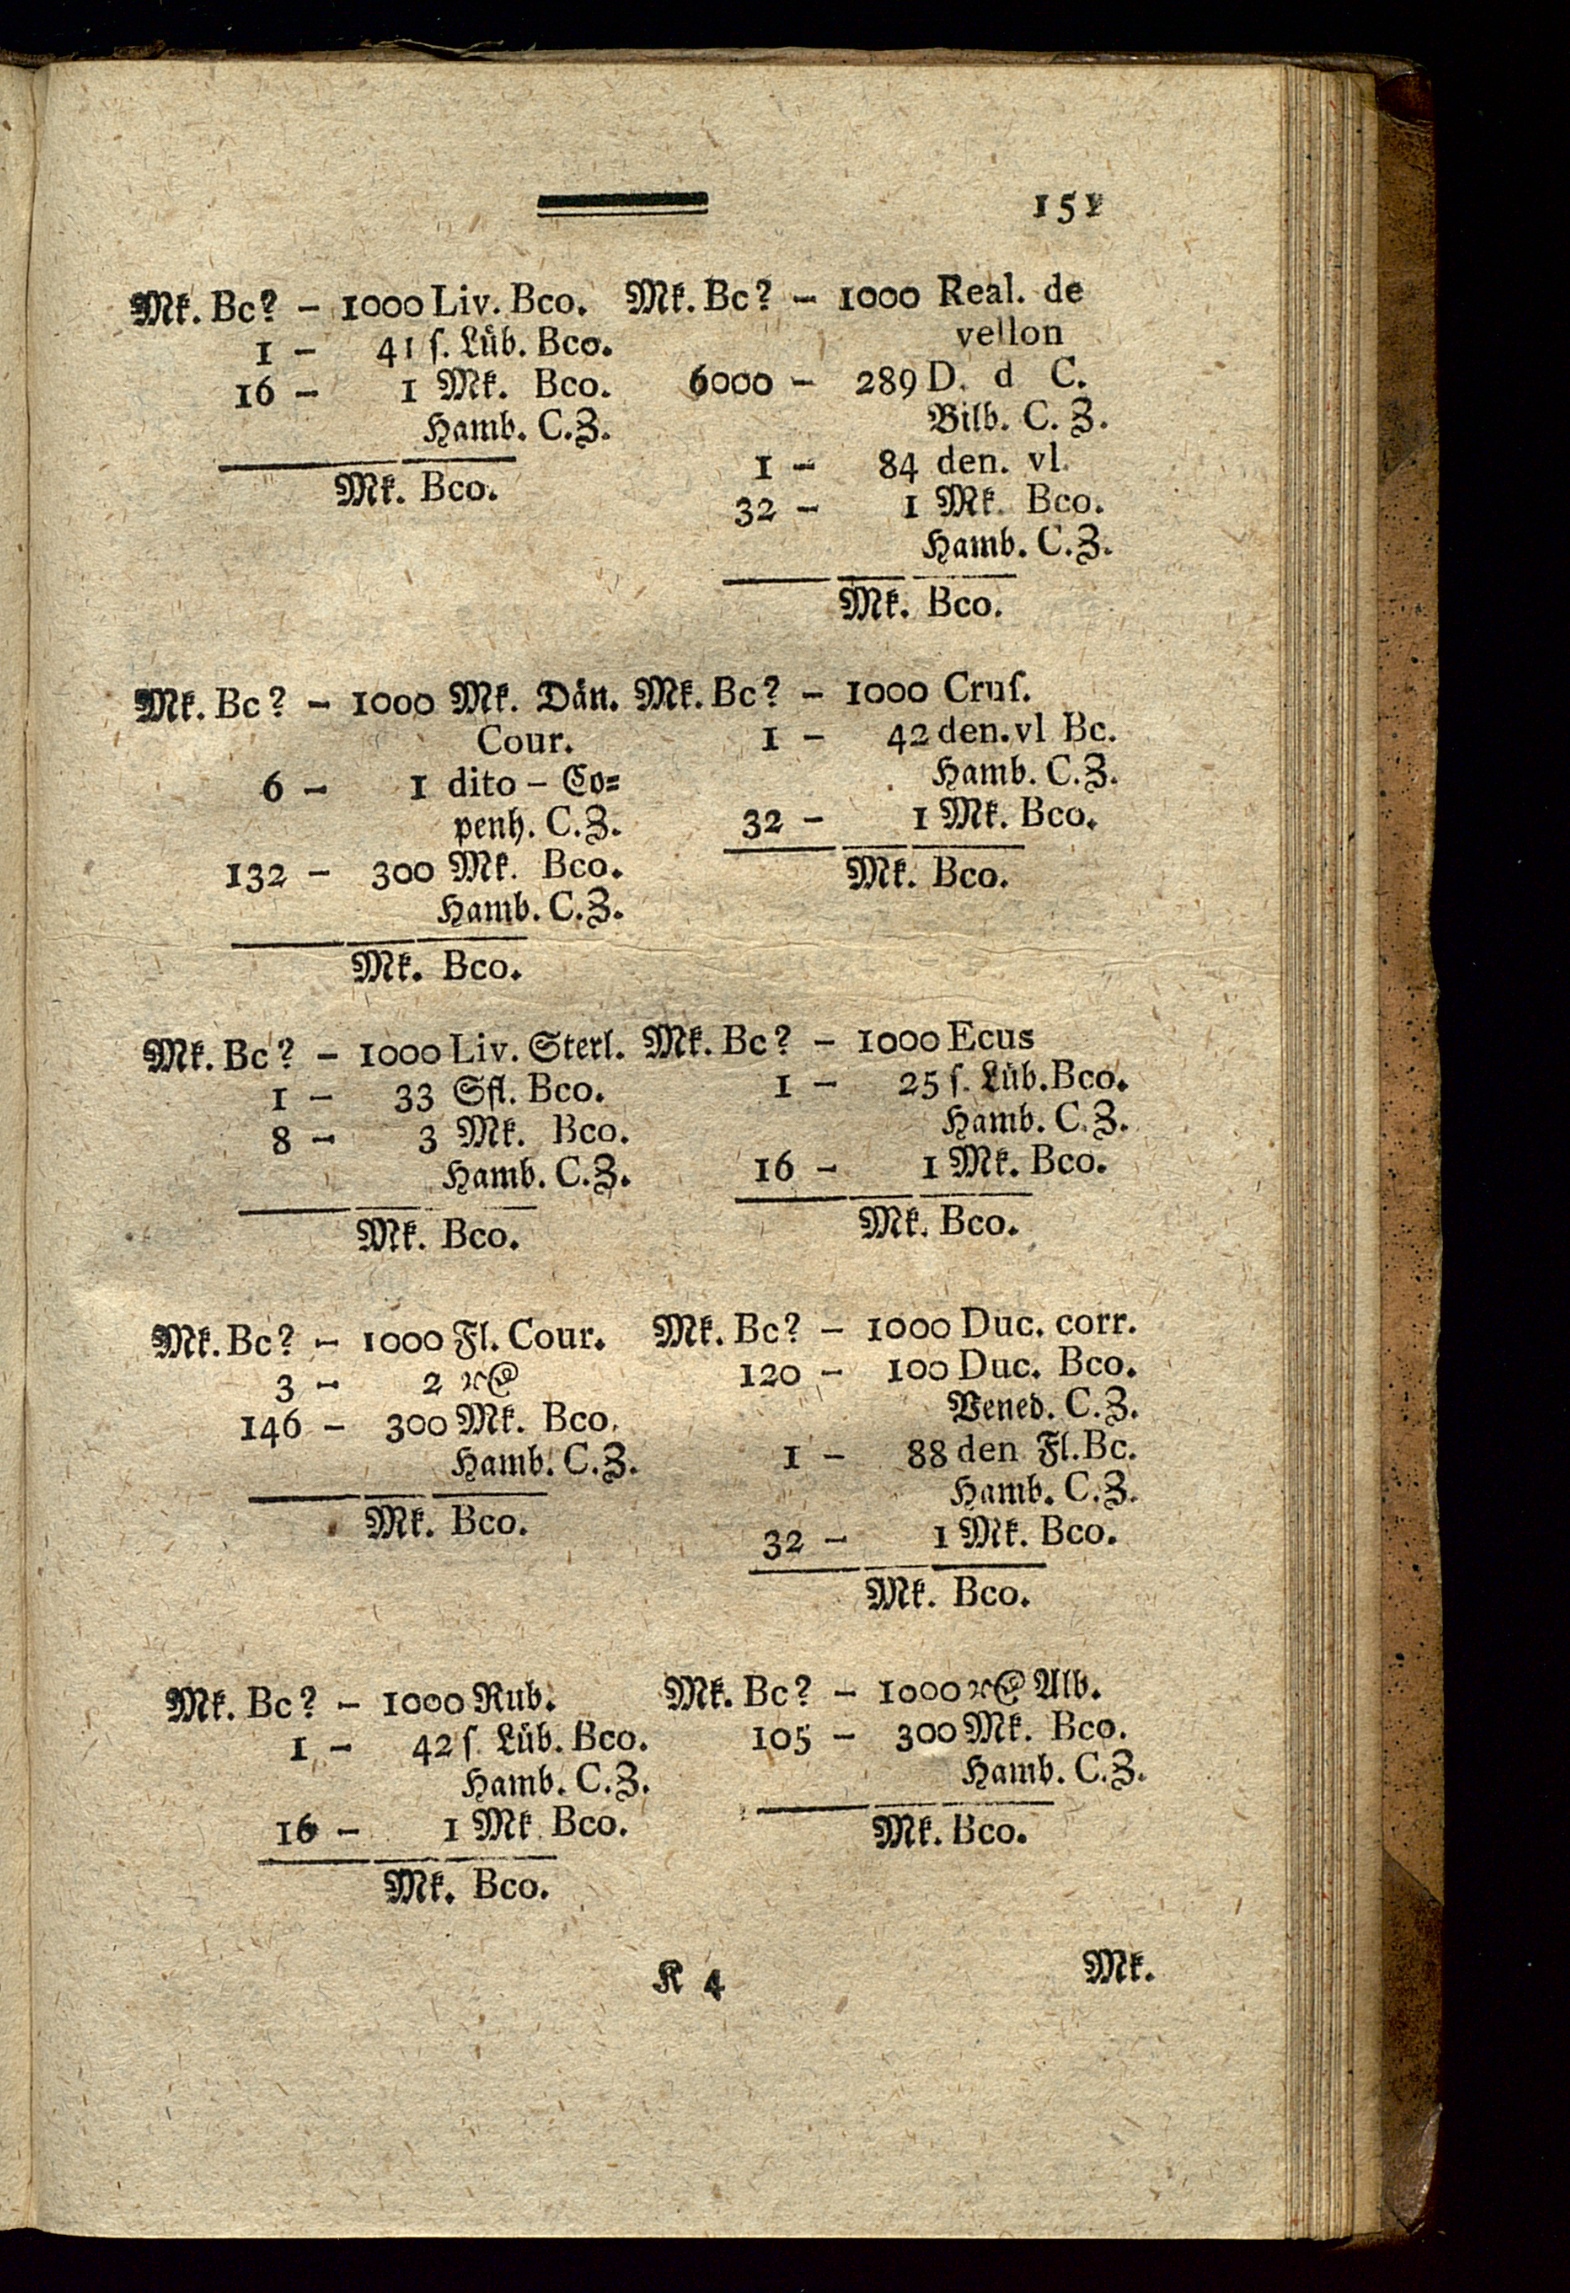 151
Mk. Bc? – 1000 Liv. Bco.
1 – 41 ſ. Lüb. Bco.
16 – 1 Mk. Bco.
Hamb. C. Z.
Mk. Bco.
Mk. Bc? – 1000 Real. de
vellon
6000 – 289 D. d C.
Bilb. C. Z.
1 – 84 den. vl.
32 – 1 Mk. Bco.
Hamb. C. Z.
Mk. Bco.
Mk. Bc? – 1000 Mk. Dän.
Cour.
6 – 1 dito – Co⸗
penh. C. Z.
132 – 300 Mk. Bco.
Hamb. C. Z.
Mk. Bco.
Mk. Bc? – 1000 Cruſ.
1 – 42 den. vl Bc.
Hamb. C. Z.
32 – 1 Mk. Bco.
Mk. Bco.
Mk. Bc? – 1000 Liv. Sterl.
1 – 33 Sfl. Bco.
8 – 3 Mk. Bco.
Hamb. C. Z.
Mk. Bco.
Mk. Bc? – 1000 Ecus
1 – 25 ſ. Lüb. Bco.
Hamb. C. Z.
16 – 1 Mk. Bco.
Mk. Bco.
Mk. Bc? – 1000 Fl. Cour.
3 – 2
146 – 300 Mk. Bco.
Hamb. C. Z.
Mk. Bco.
Mk. Bc? – 1000 Duc. corr.
120 – 100 Duc. Bco.
Vened. C. Z.
1 – 88 den Fl. Bc.
Hamb. C. Z.
32 – 1 Mk. Bco.
Mk. Bco.
Mk. Bc? – 1000 Rub.
1 – 42 ſ. Lüb. Bco.
Hamb. C. Z.
16 – 1 Mk. Bco.
Mk. Bco.
Mk. Bc? – 1000 Alb.
105 – 300 Mk. Bco.
Hamb. C. Z.
Mk. Bco.
K 4
Mk.